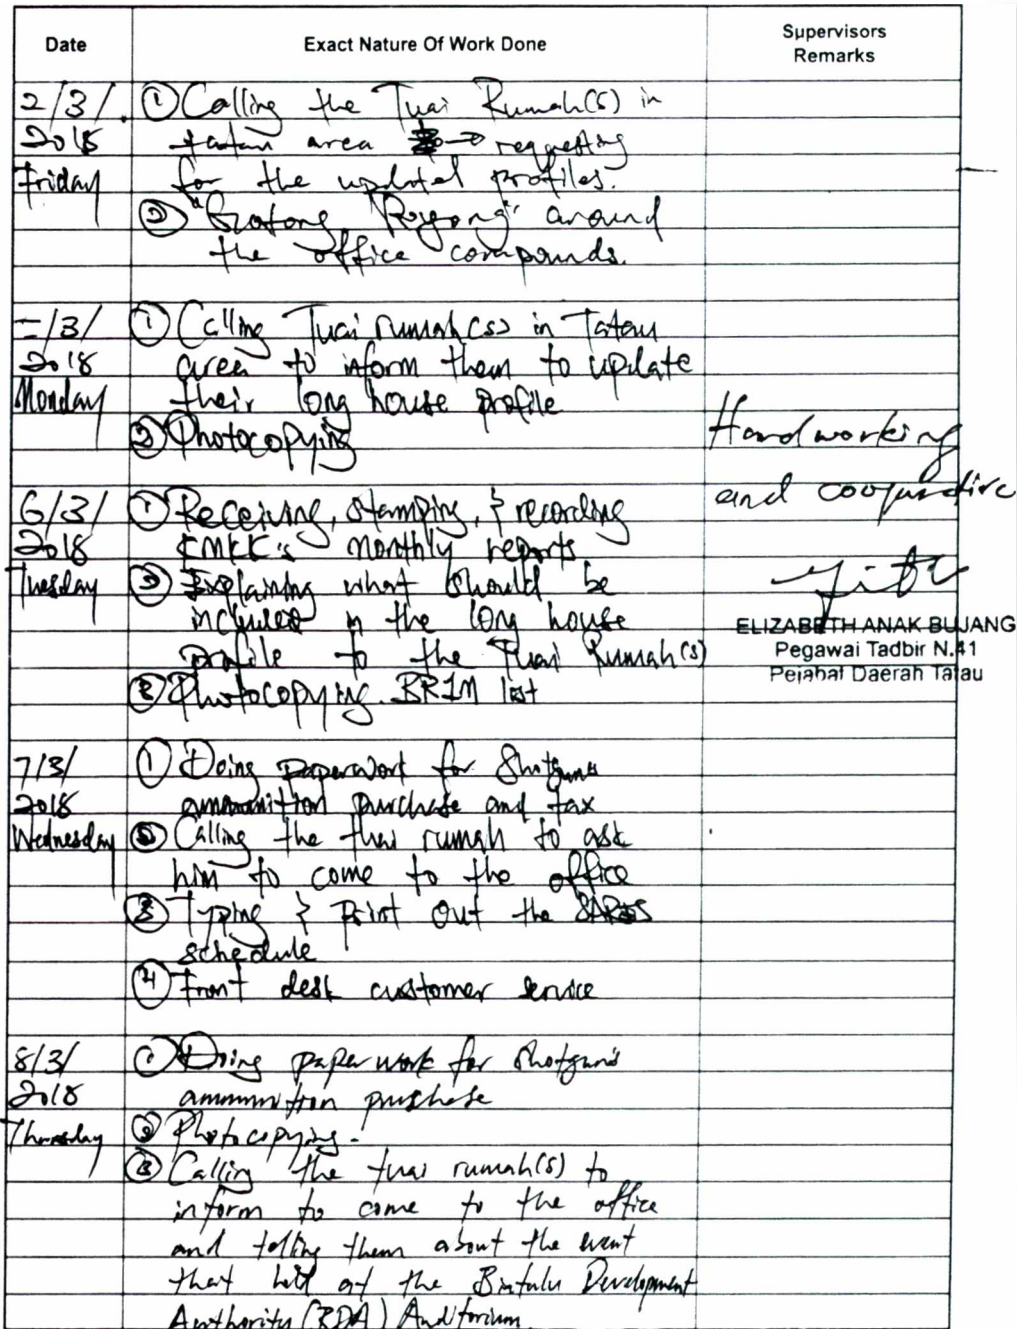 Date
Exact Nature Of Work Done
Supervisors
Remarks
2/3/
2018
Friday
① Calling the Tuai Rumah(s) in
tatau area requesting
for the updated profiles.
② "Gotong Royong" around
the office compounds.
/3/
2018
Monday
① Calling Tuai rumah(s) in Tatau
area to inform them to update
their long house profile
② Photocopying
Hardworking
and cooperative
6/3/
2018
Tuesday
① Receiving, stamping, & recording
KMKK's monthly reports
② Explaining what should be
included in the long house
profile to the Tuai Rumah(s)
③ Photocopying BR1M list
ELIZABETH ANAK BUJANG
Pegawai Tadbir N.41
Pejabat Daerah Tatau
7/3/
2018
Wednesday
① Doing paperwork for Shotguns
ammunition purchase and tax
② Calling the tuai rumah to ask
him to come to the office
③ Typing & Print out the
schedule
④ Front desk customer service
8/3/
2018
Thursday
① Doing paper work for Shotguns
ammunition puschase
② Photocopying.
③ Calling the tuai rumah(s) to
inform to come to the office
and telling them about the event
that held at the Bintulu Development
Authority (BDA) Auditorium